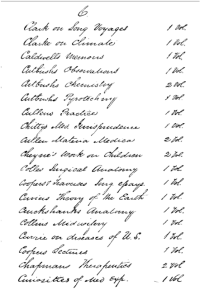 C
Clark on Long Voyages 1 Vol.
Clarke on Climate 1 Vol.
Caldwells Memoirs 1 Vol.
Cutbushs Observations 1 Vol
Cutbushs Chemistry 2 Vol
Cutbushs Pyrotechny 1 Vol
Cullens Practice 1 Vol.
Chittys Med. Jurisprudence 1 Vol.
Cullen Materia Medica 2 Vol.
Cheynes Work on Children 2 Vol.
Colles Surgical Anatomy 1 Vol.
Coopers & Travers Surg Essays 1 Vol.
Cuviers Theory of the Earth 1 Vol.
Cruickshanks Anatomy 1 Vol.
Collens Midwifery 1 Vol.
Currie on diseases of U. S. 1 Vol.
Coopers Lectures 1 Vol.
Chapmans Therapeutics 2 Vol
Curiosities of Med Exp. 1 Vol